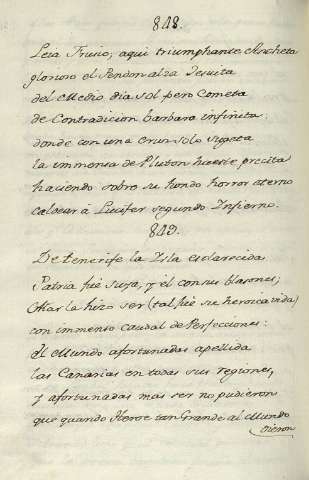 848.
Leia Trusio, aqui triumphante Ancheta
glorioso el Pendon alza Jesuita
del Medio dia sol pero Cometa
de Contradicion barbara infinita:
donde con una Cruz solo sugeta
la immensa de Pluton hueste precita
haciendo sobre su hondo horror aterno
calocar à Lucifer segundo Infierno.
849.
De tenerife la Isla esclarecida
Patria fuè suya, y èl con sus blasones,
Mas la hizo ser (tal fuè su heroica vida)
con immenso caudal de Perfecciones:
El Mundo afortunadas apellida
las Canarias en todas sus regiones,
y afortunadas mas ser no pudieron
que quando Heroe tan Grande al Mundo
dieron